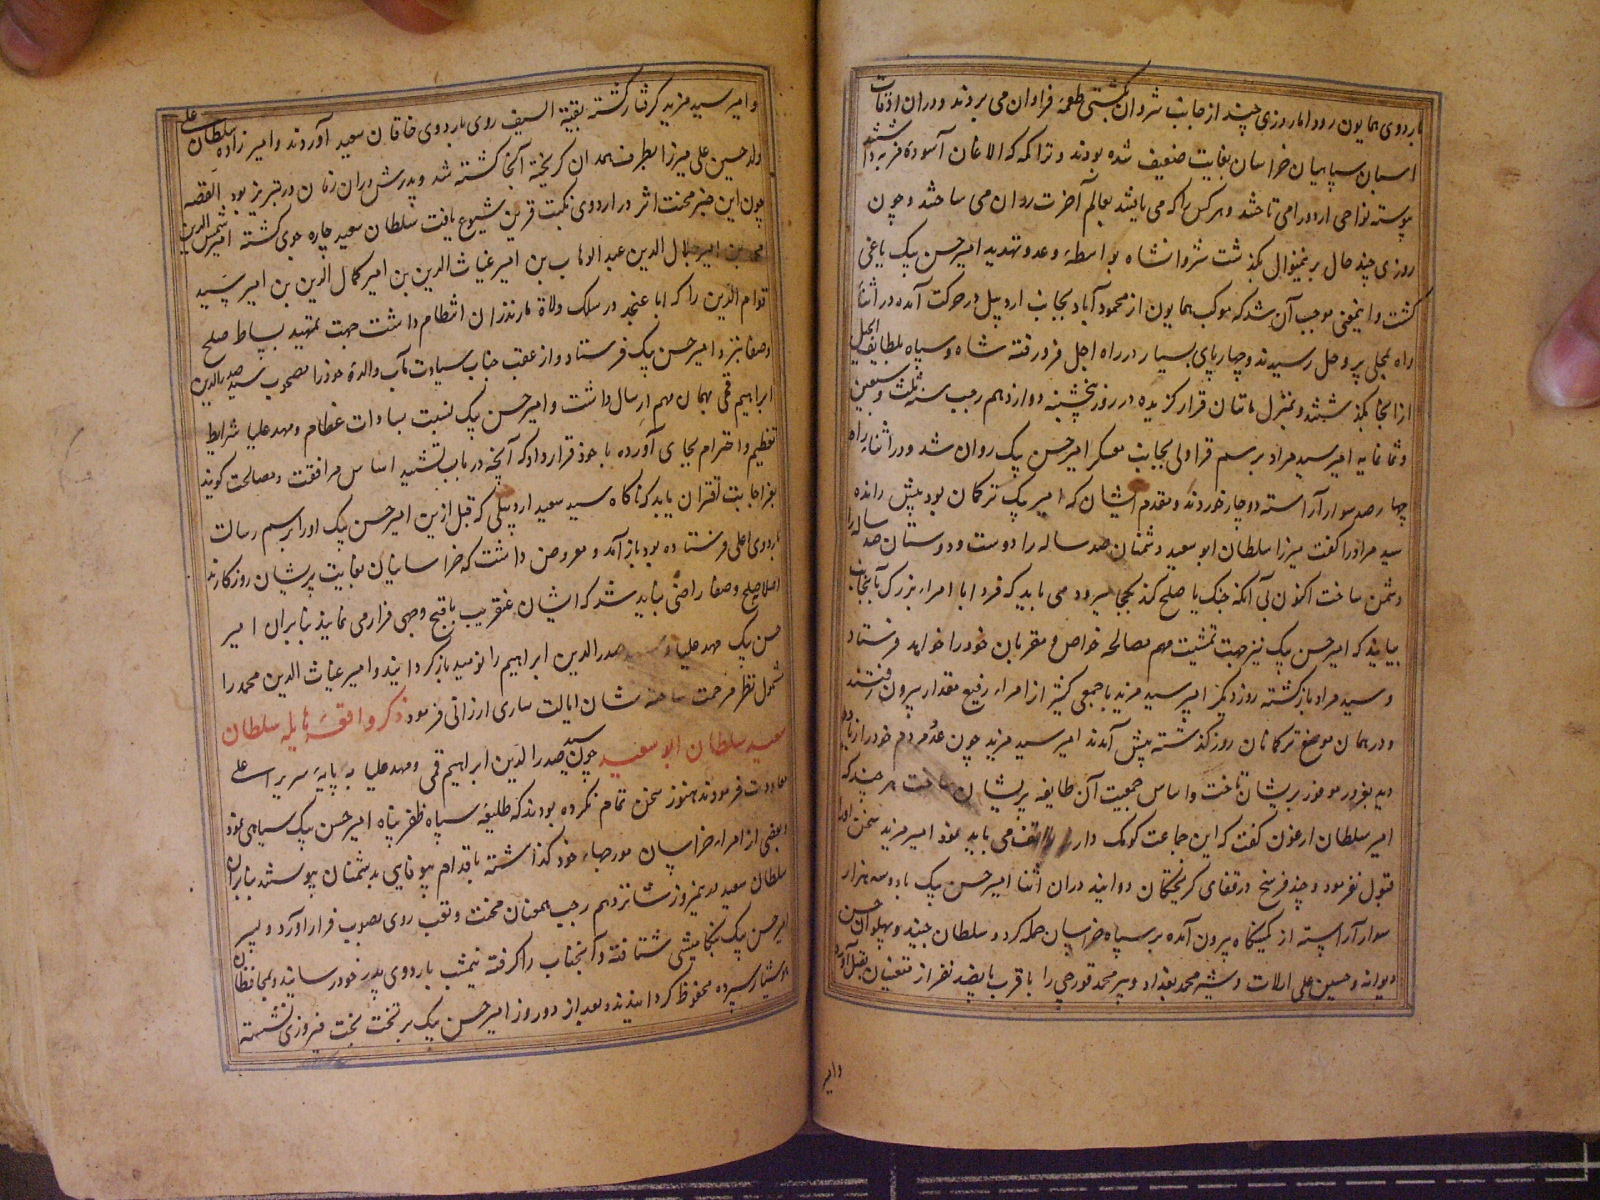 باردوی همایون رود اما روزی چند از جانب شروان بکشتی طعمهٔ فراوان می بردند و دران اوقات
اسبان سپاهیان خراسان بغایت ضعیف شده بودند و تراکمه که الاغان آسوده فربه داشتند
پیوسته نواحی اردو را می تاختند و هر کس را که می یافتند بعالم آخرت روان می ساختند و چون
روزی چند حال برینمنوال بگذشت شروانشاه بواسطهٔ وعد و تهدید امیر حسن بیک یاغی
کشت و اینمعنی موجب آن شد که موکب همایون از محمودآباد بجانب اردبیل در حرکت آمده در اثناء
راه بمحلی پر وحل رسیدند و چارپای بسیار در راه اجل فرو رفته شاه و سپاه بلطایف الحیل
از انجا بگذشتند و بمنزل قرار کزیده در روز پنجشنبه دوازدهم رجب سنه ثلث و سبعین
و ثمانمایه امیر سید مراد برسم قراولی بجانب معسکر امیر حسن بیک روان شد و در اثناء راه
چهار صد سوار آراسته دوچار خوردند و مقدم ایشان که امیر بیک ترکمان بود پیش رانده
سید مراد را کفت میرزا سلطان ابو سعید دشمنان صد ساله را دوست و دوستان صد ساله را
دشمن ساخت اکنون بی آنکه جنک یا صلح کند بکجا میرود می باید که فردا با امراء بزرک بانجانب
بیایند که امیر حسن بیک نیز جهت تمشیت مهم مصالحه خواص و مقربان خود را خواهد فرستاد
و سید مراد بازکشته روز دیکر امیر سید مزید با جمعی کثیر از امراء رفیع مقدار بیرون رفتند
و در همان موضع ترکمانان روز کذشته پیش آمدند امیر سید مزید چون عدد مردم خود را زیاده
دید بغرور موفور بریشان تاخت و اساس جمعیت آن طایفه پریشان ساخت هر چند که
امیر سلطان ارغون کفت که این جماعت کومک دارند توقف می باید نمود امیر مزید سخن او را
قبول نفرمود و چند فرسخ در قفای کریختکان دوانید دران اثنا امیر حسن بیک با دو سه هزار
سوار آراسته از کمینکاه بیرون آمده بر سپاه خراسان حمله کرد و سلطان جنید و پهلوان حسین
دیوانه و حسین علی ارلات و شیخ محمد بغداد و پیر محمد قورچی را با قرب پانصد نفر از متعینان بقتل آورد
وامیر
و امیر سید مزید کرفتار کشته بقیة السیف روی باردوی خاقان سعید آوردند و امیر زاده سلطان علی
ولد حسین علی میرزا بطرف همدان کریخته آنجا کشته شد و پدرش دران زمان در تبریز بود القصه
چون این خبر محنت اثر در اردوی نکبت قرین شیوع یافت سلطان سعید چاره جوی کشته امیر شمس الدین
محمد بن امیر جلال الدین عبد الوهاب بن امیر غیاث الدین بن امیر کمال الدین بن امیر سید
قوام الدین را که ابا عنجد در سلک ولاة مازندران انتظام داشت جهت تمهید بساط صلح
و صفا نزد امیر حسن بیک فرستاد و از عقب جناب سیادت مآب والدهٔ خود را مصحوب سید صدر الدین
ابراهیم قمی بهمان مهم ارسال داشت و امیر حسن بیک نسبت بسادات عظام و مهد علیا شرایط
تعظیم و احترام بجای آورده با خود قرار داد که آنچه در باب تشیید اساس موافقت و مصالحت کویند
بعز اجابت اقتران یابد که ناکاه سید سعید اردبیلی که قبل ازین امیر حسن بیک او را برسم رسالت
باردوی اعلی فرستاده بود باز آمد و معروض داشت که خراسانیان بغایت پریشان روزکارند
اصلا بصلح و صفا راضی نباید شد که ایشان عنقریب باقبح وجهی فرار می نمایند بنابران امیر
حسن بیک مهد علیا و سید صدر الدین ابراهیم را نومید باز کردانید و امیر غیاث الدین محمد را
مشمول نظر مرحمت ساخته نشان ایالت ساری ارزانی فرمود ذکر واقعهٔ هایله سلطان
سعید سلطان ابو سعید چون سید صدر الدین ابراهیم قمی و مهد علیا به پایهٔ سریر اعلی
معاودت فرمودند هنوز سخن تمام نکرده بودند که طلیعه سپاه ظفر پناه امیر حسن بیک سیاهی نمود
و بعضی از امراء خراسان مورجهاء خود کذاشته باقدام بیوفایی بدشمنان پیوستند بنابران
سلطان سعید در نیمروز شانزدهم رجب همعنان محنت و تعب روی بصوب فرار آورد و پسر
امیر حسن بیک بتکامیشی شتافته و آنجناب را کرفته نیمشب باردوی پدر خود رسانید و بمحافظان
هوشیار سپرده محفوظ کردانیدند و بعد از دو روز امیر حسن بیک بر تخت بخت فیروزی نشسته